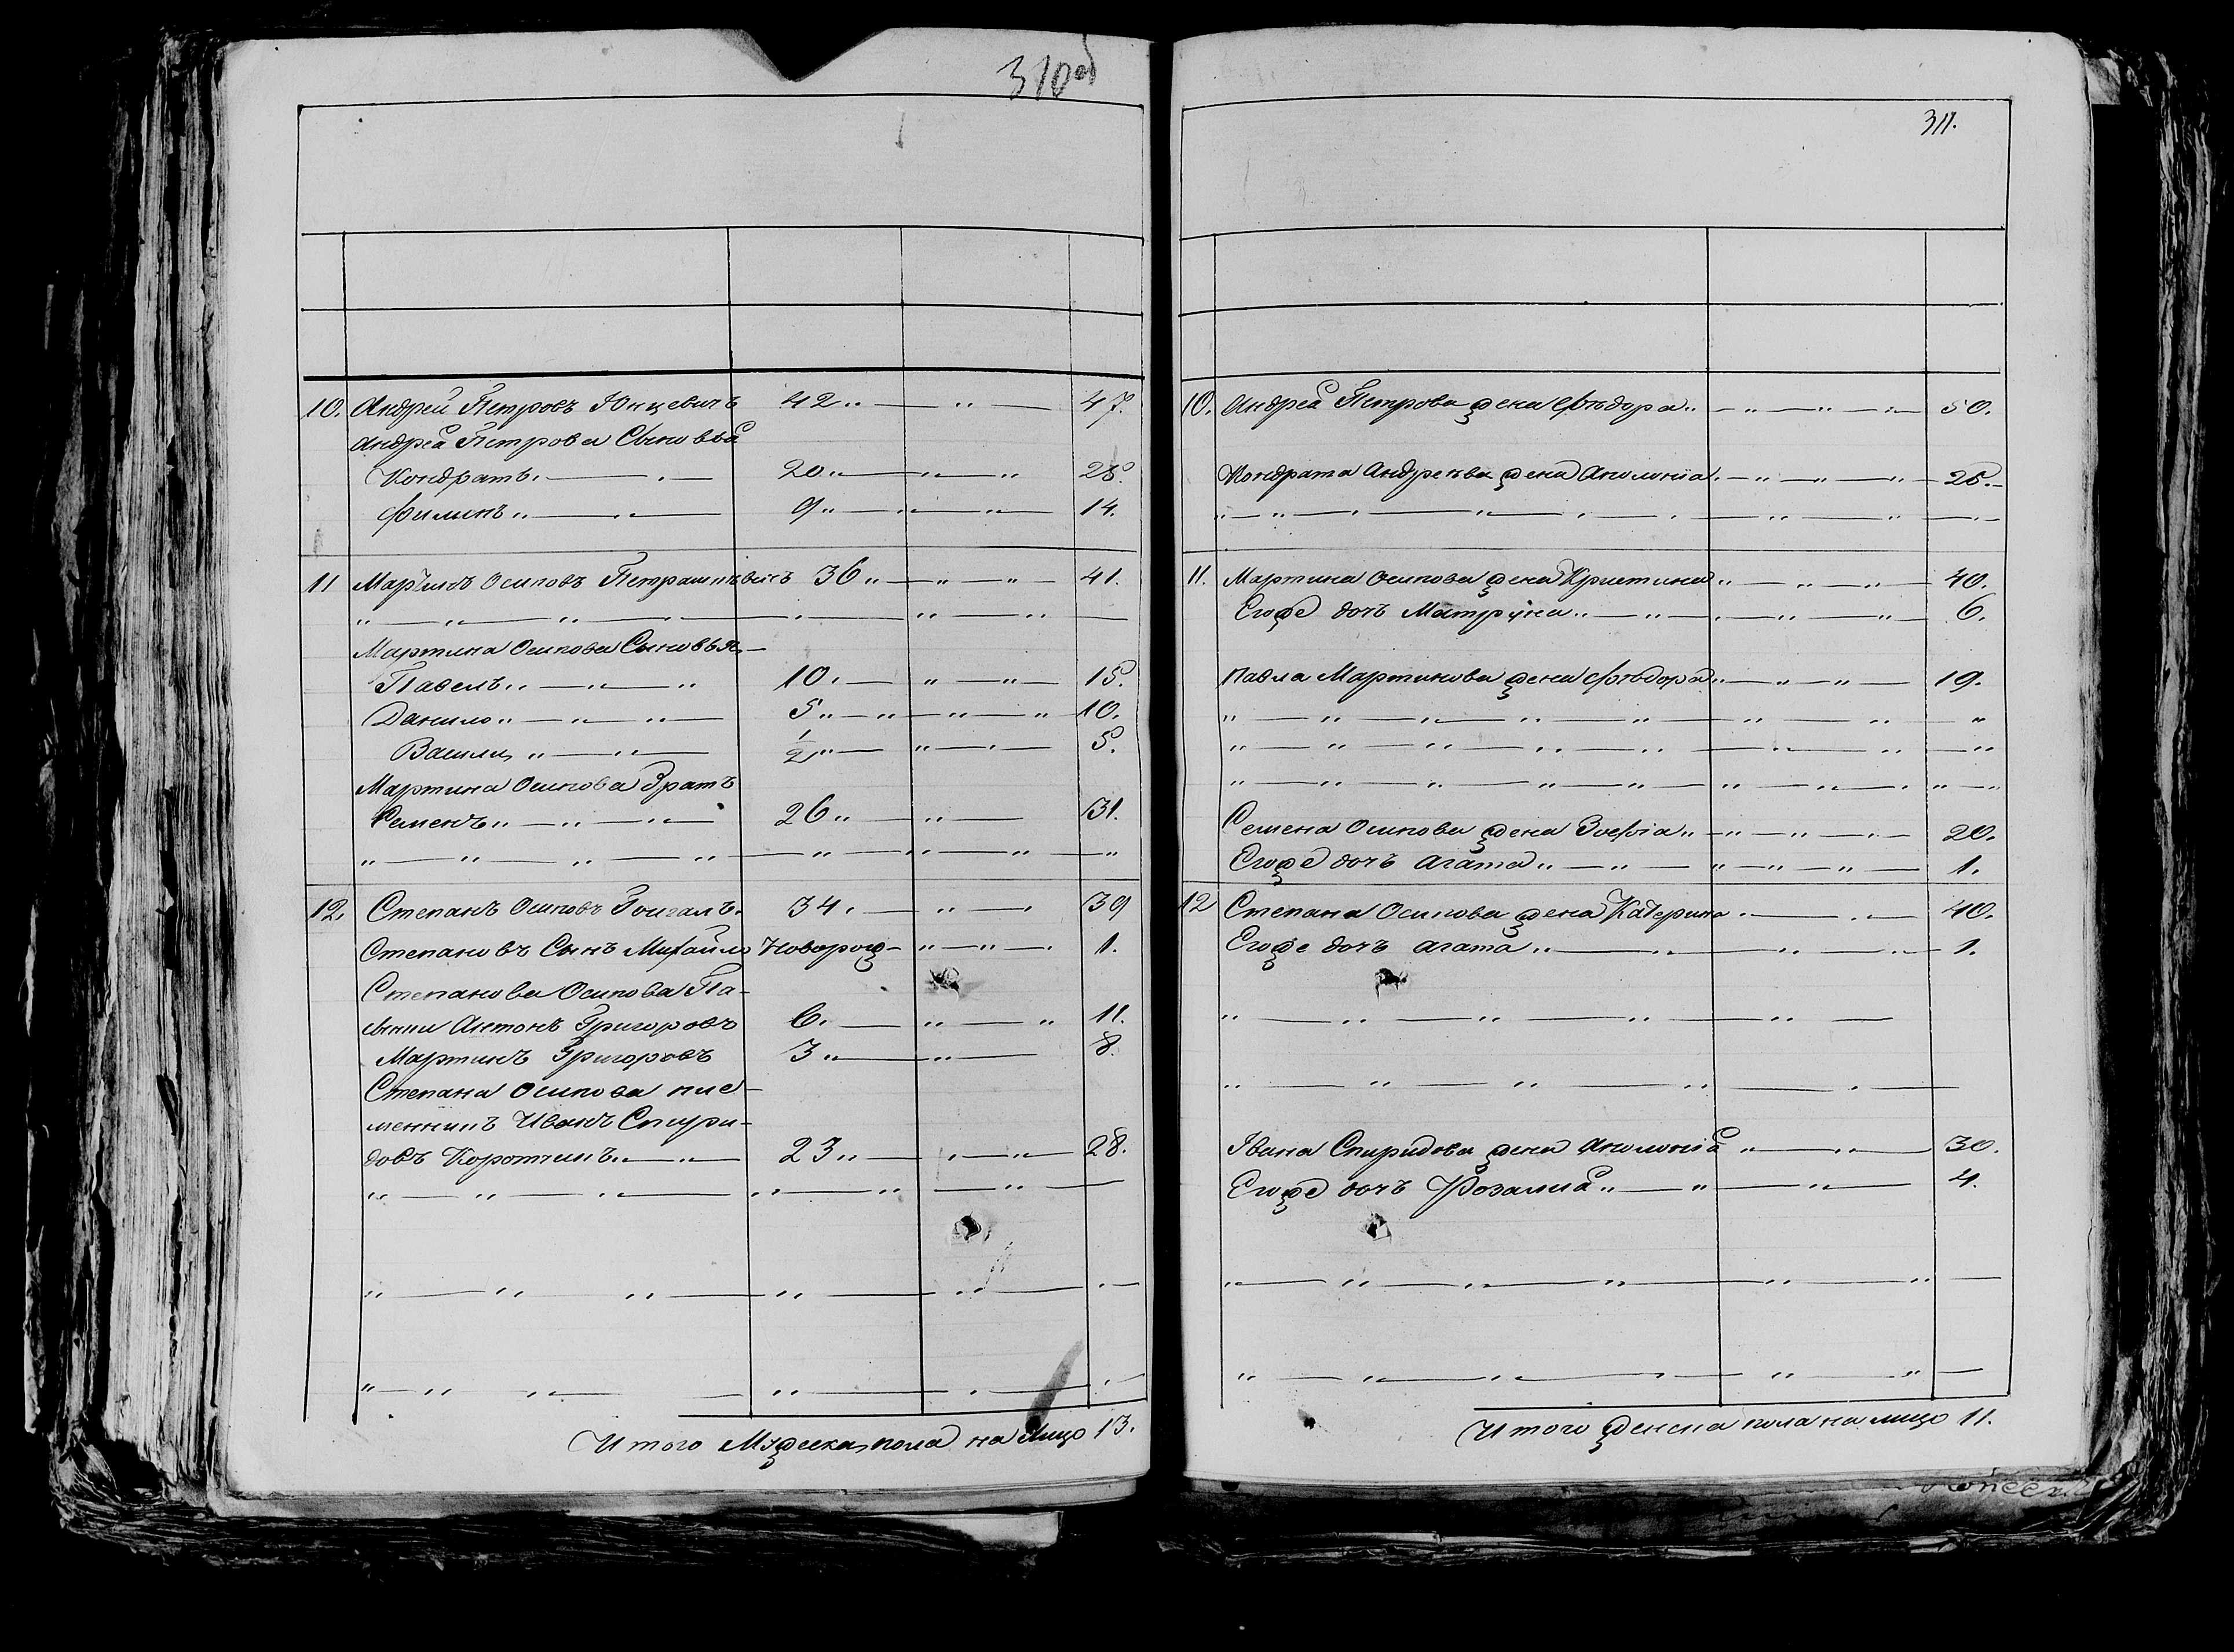 310об
10. Андрей Петровъ Юнцевичъ 42 „ — „ — 47.
Андреа Петрова Сыновьа
Кондратъ. — . — 20 „ — „ — „ 25.
Филипъ „ — „ — 9 „ — „ — „ — 14.
11 Мартинъ Осиповъ Петрашкевичъ 36 „ — „ — „ — 41.
„ — „ — „ — „ — „ — „ — „ —
Мартина Осипова Сыновья, —
Павелъ „ — „ — „ 10. — „ — „ — 15.
Данило „ — „ — „ — 5 „ — „ — „ — „ 10.
Васили „ — „ — 1/2 „ — „ — . — 5.
Мартина Осипова Братъ
Семенъ „ — „ — „ — 26 „ — „ — 31.
„ — „ — „ — „ — „ — „ — „ — „
12. Степанъ Осиповъ 34. — „ — . 39
Степановъ Сынъ МихайлоНоворож — „ — „ — . 1.
Степанова Осипова Па-
сынки Антонъ Григоровъ 6. — „ — „ 11.
Мартинъ Григоровъ 3 „ — „ — 8.
Степана Осипова пле-
менникъ Иванъ Спири-
довъ Короткинъ. — „ — 23 „ — „ — „ — 28.
„ — „ — „ — „ — „ — „ —
„ — „ „ — „ — „ — . —
„ — „ „ — — „ — . — . —
Итого Мужеска, пола на лицо 13.
311.
10. Андреа Петрова жена Фѣдора „ — „ — „ — „ — 50.
Кондрата Андреѣва жена Аполонiа. — „ — „ — „ — 25. —
„ — „ — . — „ — . — . — „ — „ — . —
11. Мартина Осипова жена Кристина „ — „ — „ — 40.
Егоже дочь Матруна „ — „ — . — „ — „ — 6.
Павла Мартинова жена Фѣдора „ — „ — „ — 19.
„ — „ — „ — „ — „ — „ — „ — „
„ — „ — „ — „ — „ — „ — „ — „
„ — „ — „ — „ — „ — „ — „ — . „ — „
Семена Осипова жена Зофiа „ — „ — „ — . — 20.
Егоже дочь Агата „ — „ — „ — „ — „ — 1.
12 Степана Осипова жена Катерина . — . — 40.
Егоже дочь Агата „ — „ — „ — „ — 1.
„ — „ — „ — „ — „ —
„ — „ — „ — „ — . —
Iвана Спиридова жена Аполонiа „ — „ — 30.
Егоже дочь Розалиа „ — „ — „ — 4.
„ — „ — „ — „ — „ — „ —
„ — „ — „ — „ — „ — „ —
Итого женска пола на лицо 11.